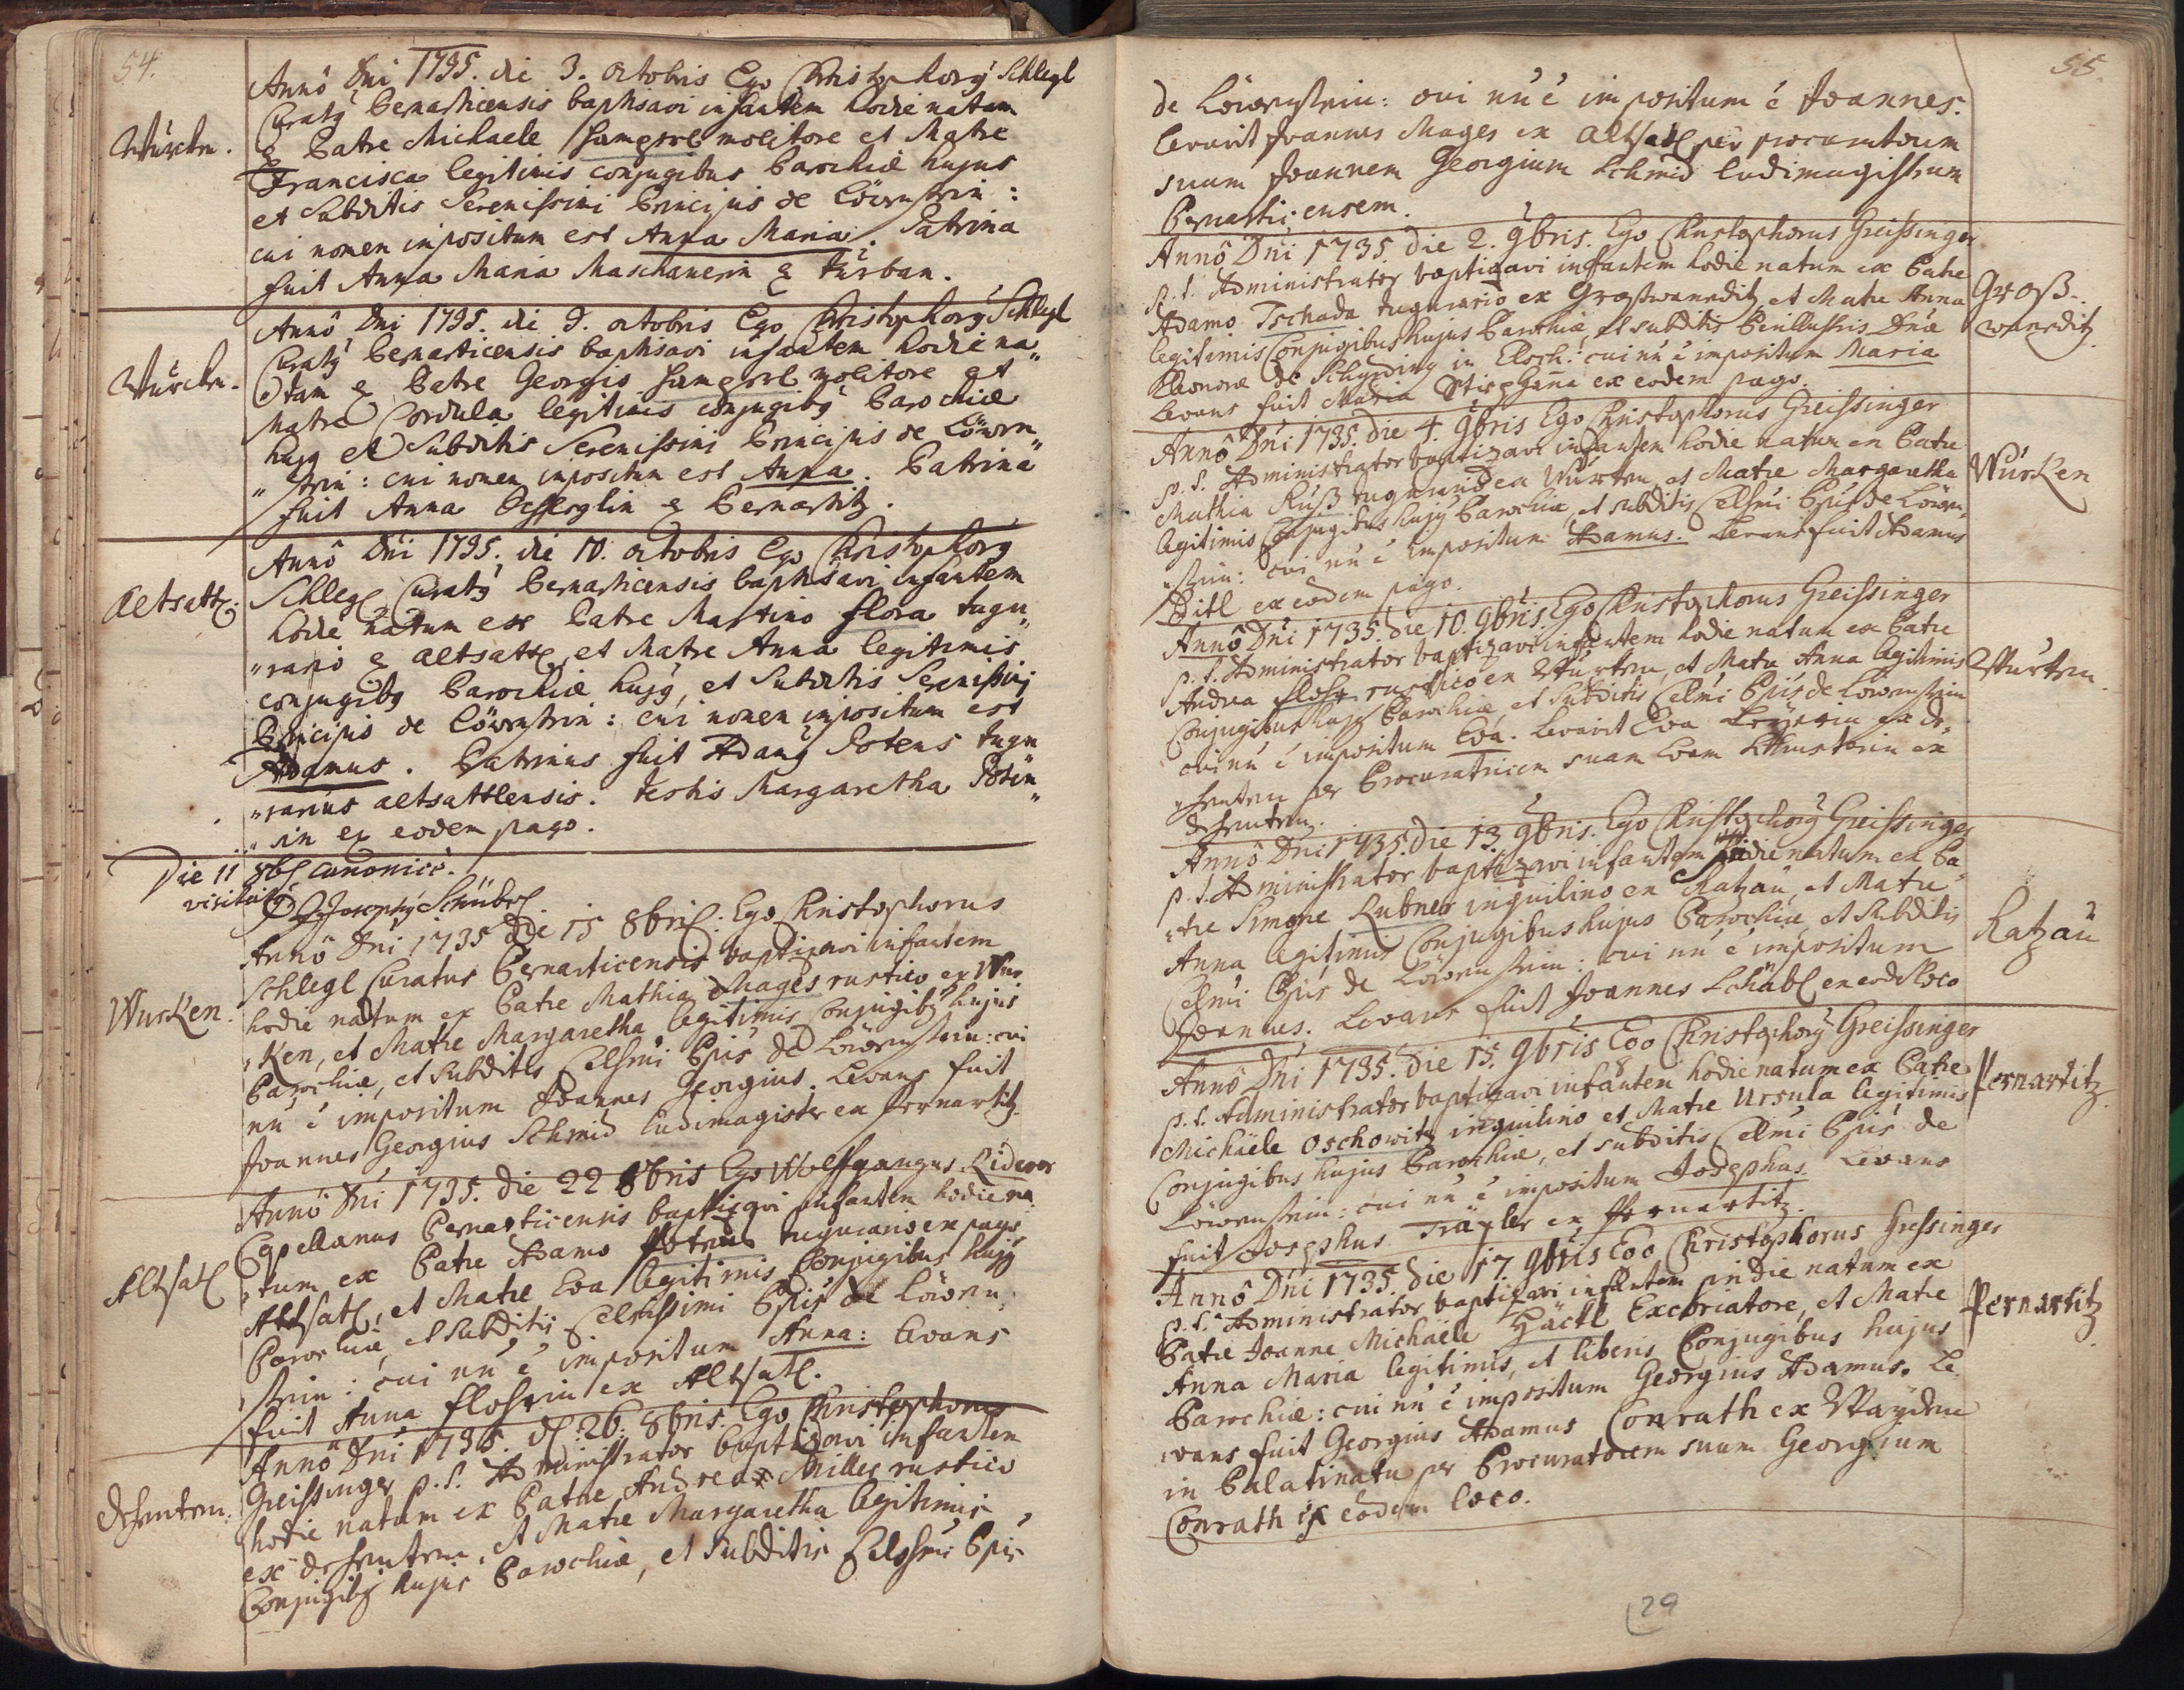 54.
Würcken.
Annô Dni 1735. die 3. octobris Ego Christophorg Schlegl
Curatg Bernarticensis baptisavi infantem hodie natam
Patre Michaele Hamperl molitore et Matre
Francisca legitimis conjugibus Parochiæ hujus
et Subditis Serenissimi Principis de Löwenstein:
cui nomen impositum est Anna Maria. Patrina
fuit Anna Maria Maschauerin
Würcken.
Annô Dni 1735. die 9. octobris Ego Christophorg Schlegl
Curatg Bernarticensis baptisavi infantem hodie na
tam Patre Georgio Hamperl molitore et
Matre Cordula legitimis conjugibg Parochiæ
hujg et Subditis Serenissimi Principis de Löwen
stein: cui nomen impositum est Anna. Patrina
fuit Anna Bernartitz.
Altsattl.
Annô Dni 1735. die 10. octobris Ego Christophorg
Schlegl Curatg Bernarticensis baptisavi infantem
hodie natum ex Patre Martino Flora tugu
rario altsattl, et Matre Anna legitimis
conjugibg Parochiæ hujg, et Subditis Serenissimi
Principis de Löwenstein: cui nomen impositum est
Adamus. Patrinus fuit Adamg Potens tugu
rarius altsattlensis. testis Margaretha Poten
in ex eodem pago.
Die 11 8b canonicè
visitavit Josephg Schübel
Wurken.
Annô Dni 1735 die 15 8bris: Ego Christophorus
Schlegl Curatus Bernarticensis baptizavi infantem
hodie natum ex Patre Mathia Mages rustico ex Wur
ken, et Matre Margaretha legitimis Conjugibg hujus
Parochiæ, et subditis Celsmi Ppis de Löwenstein: cui
nn é impositum Joannes Georgius. Levans fuit
Joannes Georgius Schmid Ludimagister ex Pernartitz.
Altsatl
Annô Dni 1735. die 22 8bris Ego Wolfgangus
Capellanus Bernarticensis baptizavi infantem hodie na
tum ex Patre Adamo Potens tugurario ex pago
Altsatl, et Matre Eva legitimis Conjugibus hujg
Parochiæ, et subditis Celsissimi Ppis de Löwen
stein: cui nn é impositum Anna: Levans
fuit Anna Flohrin ex Altsatl.
Annô Dni 1735. d. 26. 8bris. Ego Christophorus
Greissinger p.t. Administrator baptizavi infantem
hodie natum ex Patre Andrea Miller rustico
ex, et Matre Margaretha legitimis
Conjugibg hujus Parochiæ, et subditis Celssmi Ppis
55.
de Löwenstein: cui nn é impositum é Joannes.
Levavit Joannes Mages ex Altsatl per procuratorem
suum Joannem Georgium Schmid ludimagistrum
Bernarticensem.
Groß-
waneditz
Annô Dni 1735. die 2. 9bris. Ego Christophorus Greissinger
p.t. Administrator baptizavi infantem hodie natum ex Patre
Adamo Tschada tugurario ex Großwaneditz, et Matre Anna
legitimis Conjugibus hujus Parochiæ, et subditis Perillustris Dnæ
Eleonoræ de in: cui nn é impositum Maria
Levans fuit Maria Stiephana ex eodem pago.
Würken
Annô Dni 1735. die 4. 9bris Ego Christophorus Greissinger
p.t. Administrator baptizavi infantem hodie natum ex Patre
Mathia Ruß tugurario ex Würken, et Matre Margaretha
legitimis Conjugibus hujg Parochiæ, et subditis Celsmi Ppis de Löwen
stein: cui nn é impositum Adamus. Levans fuit Adamus
Ditl ex eodem pago.
Würken
Annô Dni 1735. die 10. 9bris. Ego Christophorus Greissinger
p.t. Administrator baptizavi infantem hodie natum ex Patre
Andrea Flohr rustico ex Würken, et Matre Anna legitimis
Conjugibus hujg Parochiæ, et subditis Celsmi Ppis de Löwenstein
cui nn é impositum Eva. Levavit Eva ex
per Procuratricem suam Evam ex
Ratzau
Annô Dni 1735. die 13. 9bris. Ego Christophorg Greissinger
p.t. Administrator baptizavi infantem hodie natum ex Pa
tre Simone Rubner inquilino ex Ratzau, et Matre
Anna legitimis Conjugibus hujus Parochiæ, et subditis
Celsmi Ppis de Löwenstein: cui nn é impositum
Joannes. Levans fuit Joannes Schäbl ex eodem loco
Pernartitz
Annô Dni 1735. Die 15. 9bris Ego Christophorg Greissinger
p.t. Administrator baptizavi infantem hodie natum ex Patre
Michäele Oschowitz inquilino, et Matre Ursula legitimis
Conjugibus hujus Parochiæ, et subditis Celsmi Ppis de
Löwenstein: cui nn é impositum Josephus. Levans
fuit Josephus Träxler ex Pernartitz.
Pernartitz
Annô Dni 1735. die 17 9bris Ego Christophorus Gressinger
p.t. Administrator baptizavi infantem pridie natum ex
Patre Joanne Michäele Häckl Excoriatore, et Matre
Anna Maria legitimis, et liberis Conjugibus hujus
Parochiæ: cui nn é impositum Georgius Adamus. Le
vans fuit Georgius Adamus Conrath ex Waydten
in Palatinatu per Procuratorem suum Georgium
Conrath ex eodem loco.
29